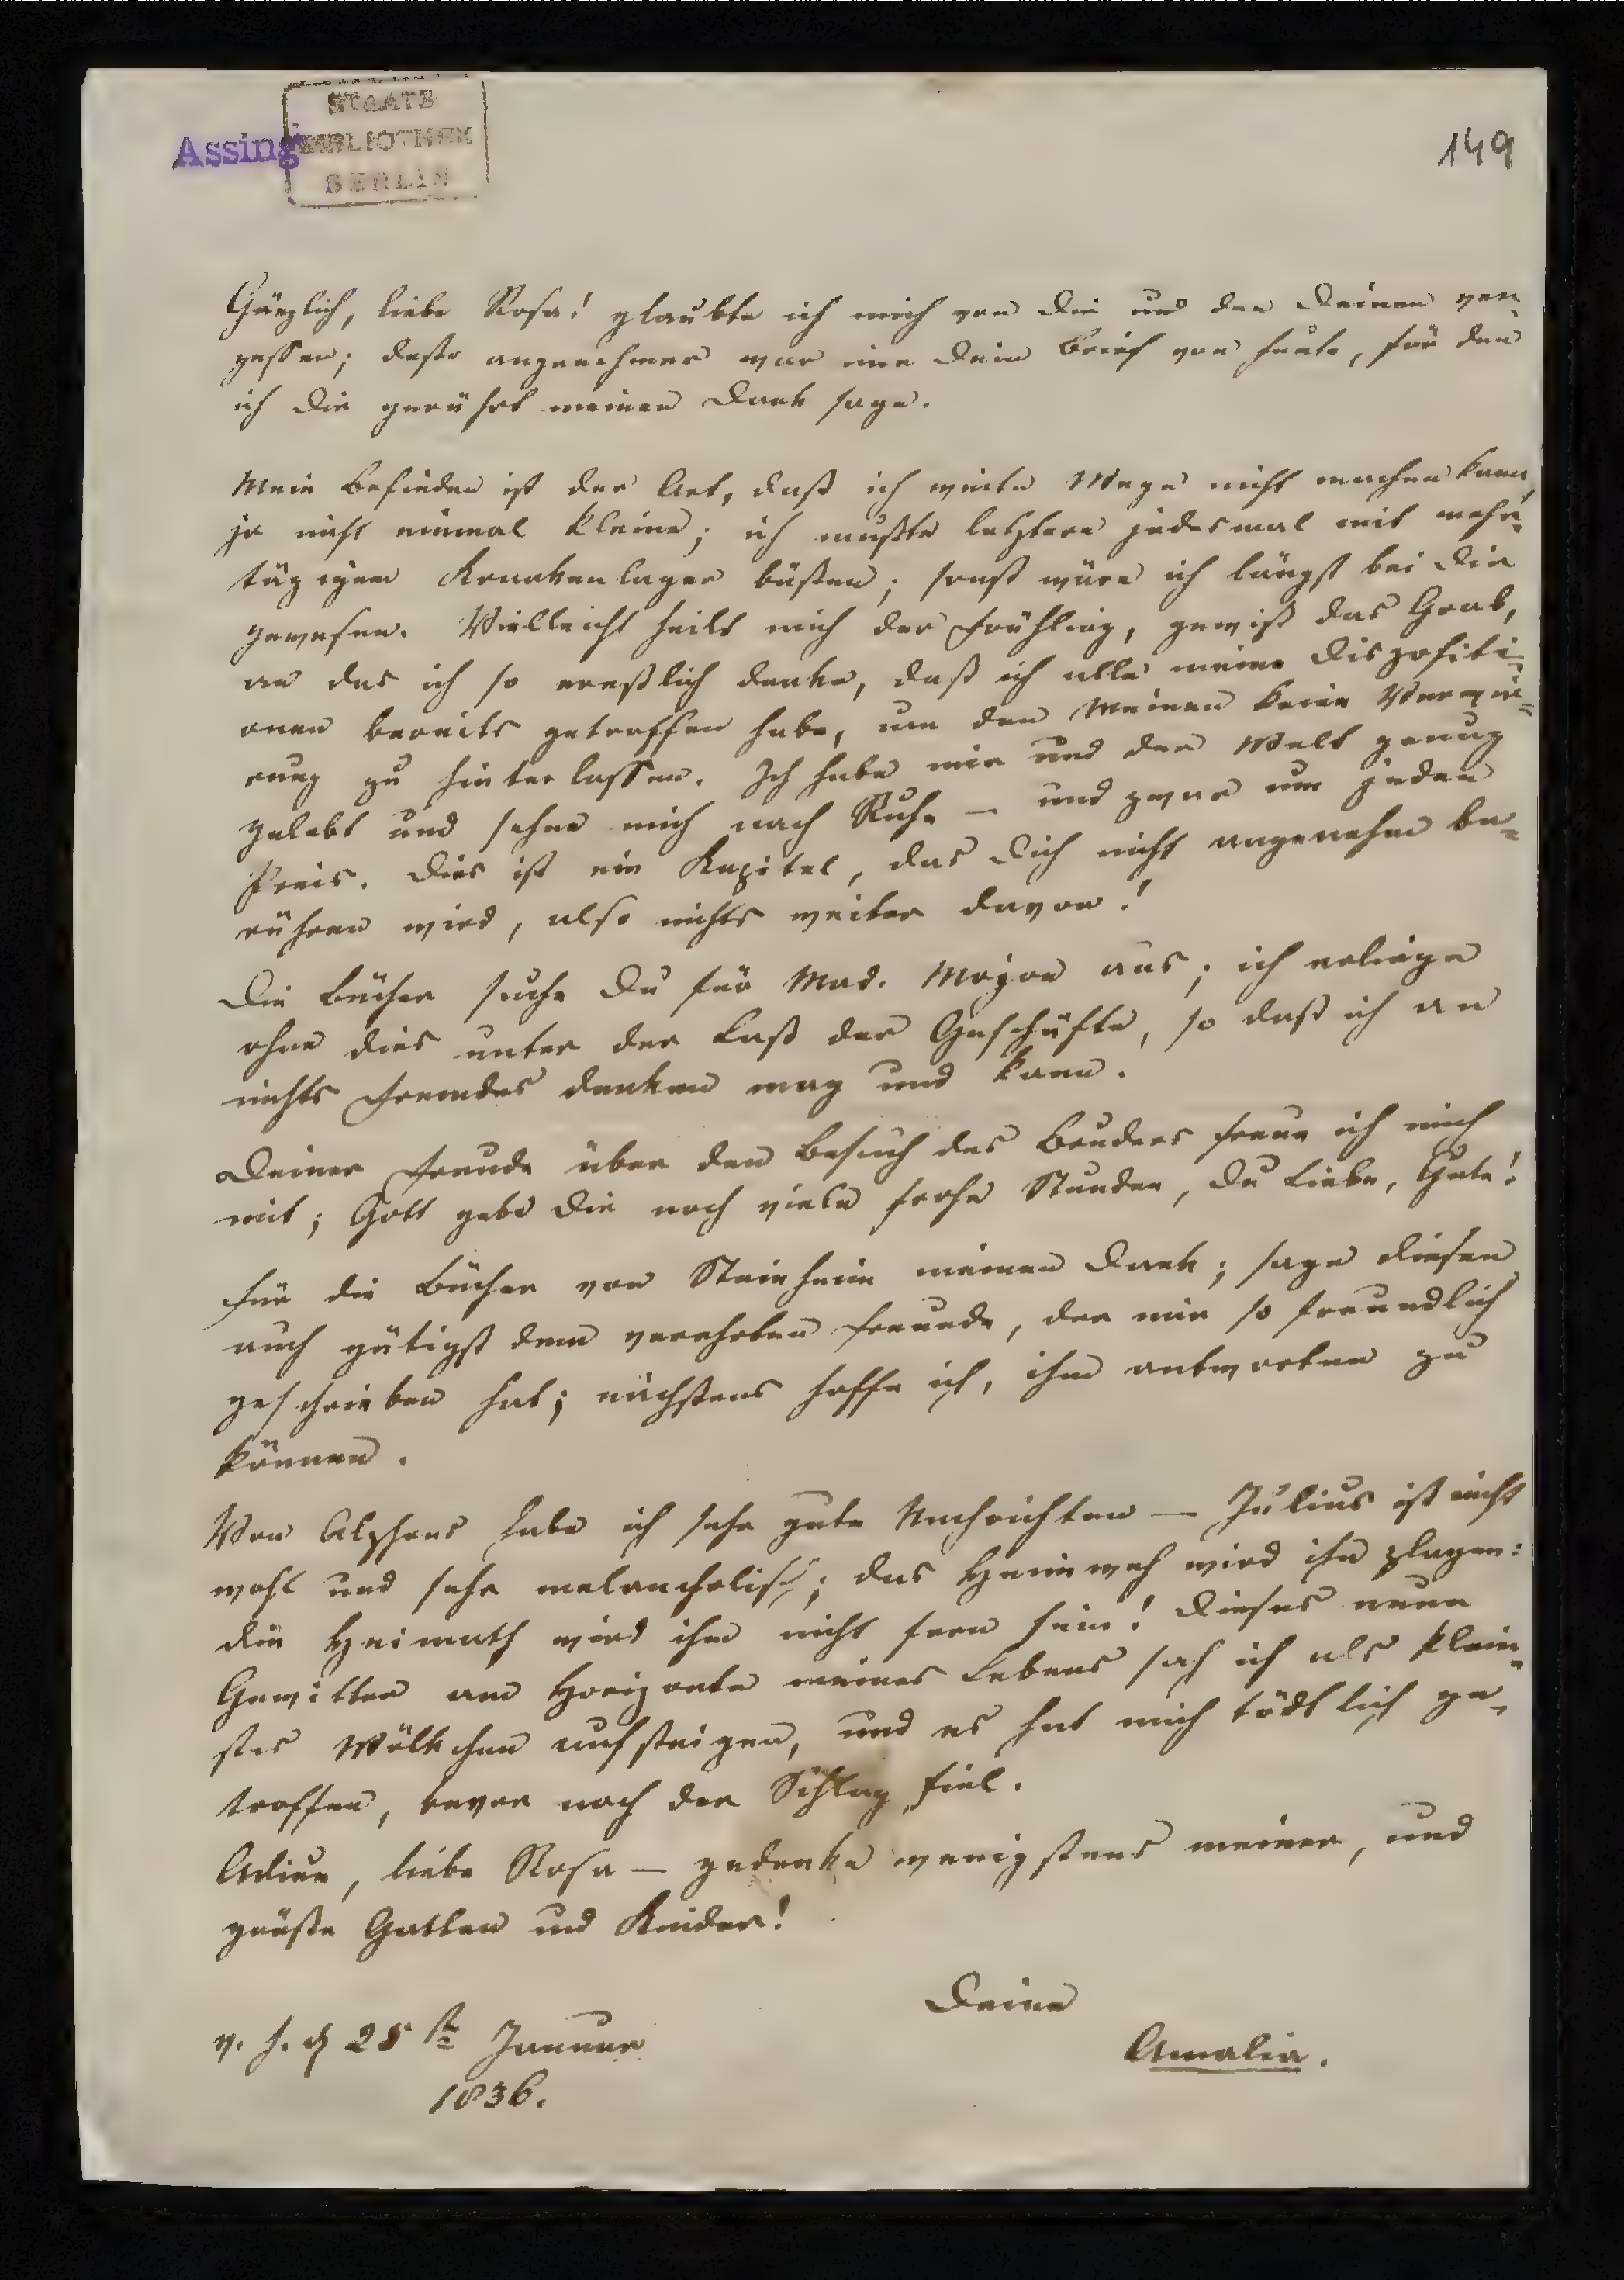 STAATS
BIBLIOTHEK
BERLIN
Assing
149
Gänzlich, liebe Rosa! glaubte ich mich von Dir und den Deinen ver-
gessen; desto angenehmer war mir Dein Brief von heute, für den
ich Dir gerührt meinen Dank sage.
Mein Befinden ist der Art, daß ich weite Wege nicht machen kann,
ja nicht einmal kleine; ich mußte letztere jedesmal mit mehr-
tägigem Krankenlager büßen; sonst wäre ich längst bei Dir
gewesen. Vielleicht heilt mich der Frühling, gewiß das Grab,
an das ich so ernstlich denke, daß ich alle meine Dispositi-
onen bereits getroffen habe, um den Meinen keine Verwir-
rung zu hinterlassen. Ich habe mir und der Welt genug
gelebt und sehne mich nach Ruhe — und zwar um jeden
Preis. Dies ist ein Kapitel, das Dich nicht angenehm be-
rühren wird, also nichts weiter davon!
Die Bücher suche Du für Mad. aus; ich erliege
ohne dies unter der Last der Geschäfte, so daß ich an
nichts Fremdes denken mag und kann.
Deiner Freude über den Besuch des Bruders freue ich mich
mit; Gott gebe Dir noch viele frohe Stunden, Du Liebe, Gute!
Für die Bücher von Steinheim meinen Dank; sage diesen
auch gütigst dem verehrten Freunde, der mir so freundlich
geschrieben hat; nächstens hoffe ich, ihm antworten zu
können.
Von Alphons habe ich sehr gute Nachrichten — Julius ist nicht
wohl und sehr melancholisch; das Heimweh wird ihn plagen:
die Heimath wird ihm nicht fern sein! Dieses neue
Gewitter am Horizonte meines Lebens sah ich als klein-
stes Wölkchen aufsteigen, und es hat mich tödtlich ge-
troffen, bevor noch der Schlag fiel.
Adieu, liebe Rosa — gedenke wenigstens meiner, und
grüße Gatten und Kinder!
Deine
Amalia.
v. H. d 25 st Januar
1836.